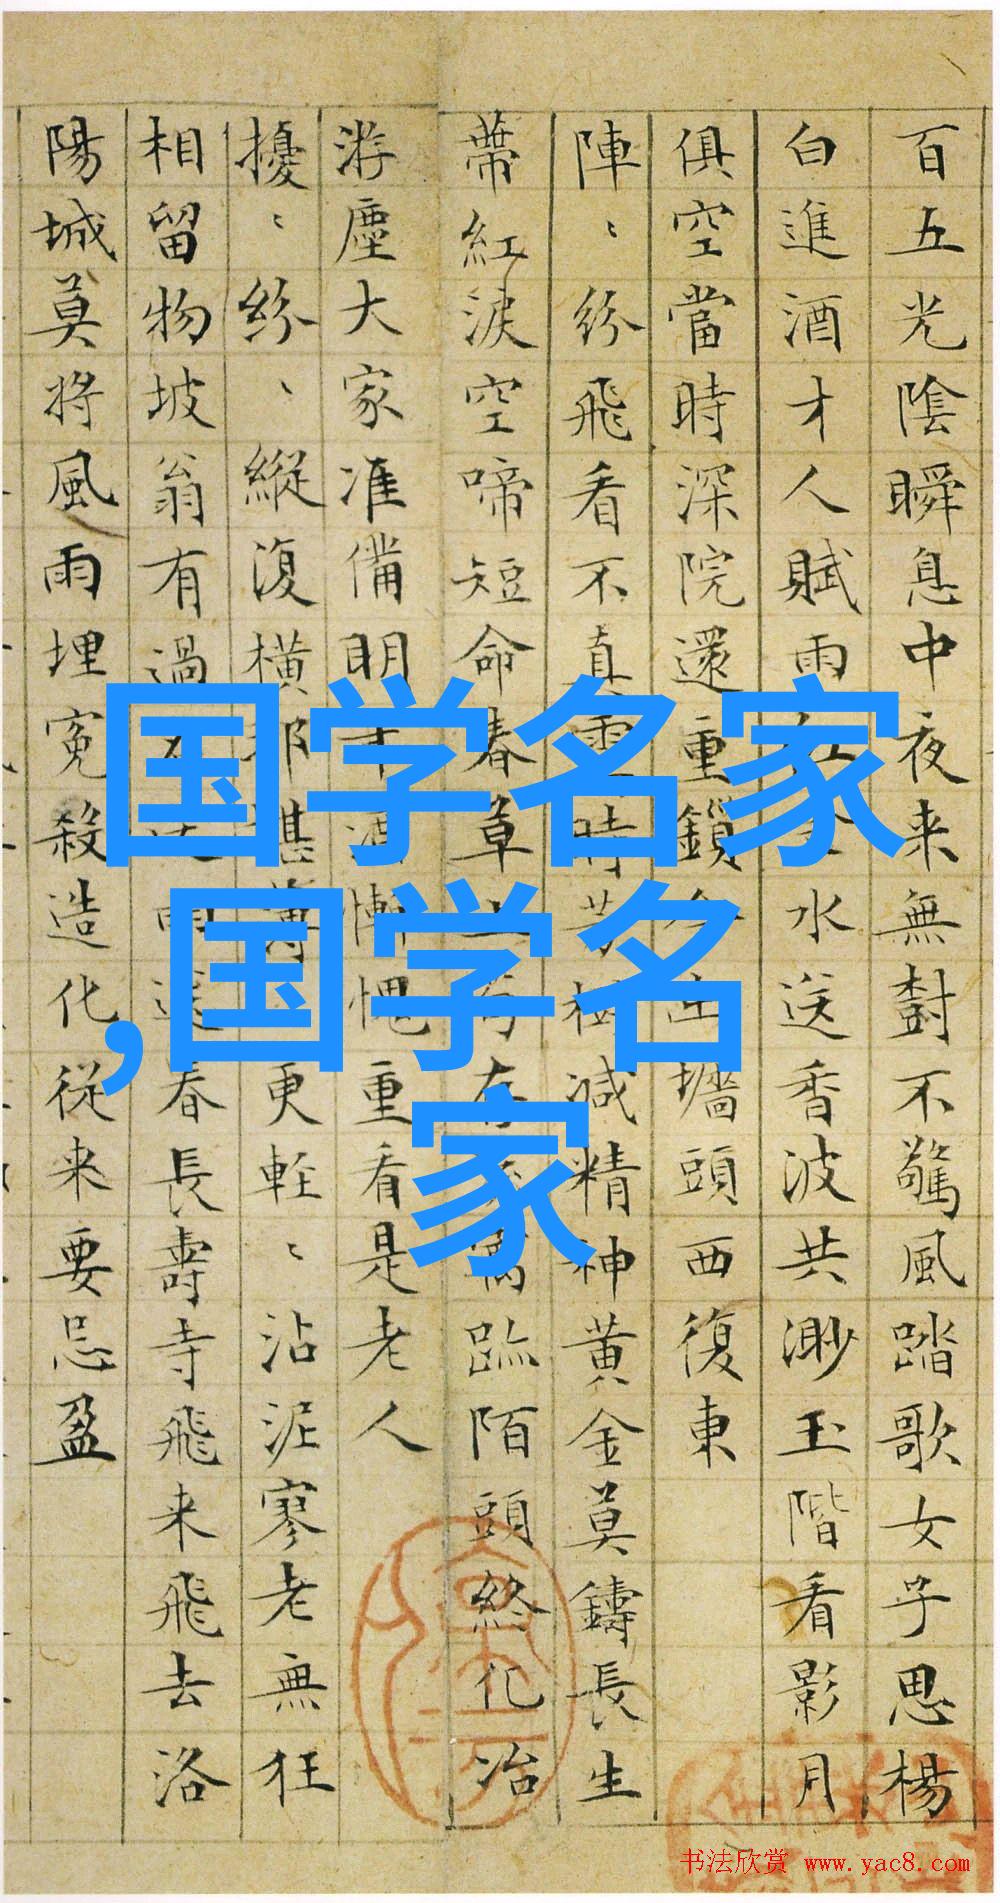 百五光陰瞬息中夜来無對不驚風踏歌女子思楊
白進酒才人賦雨水送香波共渺玉階看影月
俱空當時深院還重鎖牆頭西復東
陣〻紛飛看不真時減精神黄金莫鑄長生
蒂紅淚空啼短命春草存陌頭終化冶
游塵大家准備明慚愧重看是老人
擾〻紛〻縱復横那堪更輕〻沾泥寥老無狂
相留物坡翁有過送春長壽寺飛来飛去洛
陽城莫将風雨埋冤殺造化従来要忌盈
国学名家
,国学名
家
书法欣赏 www.yac8.com